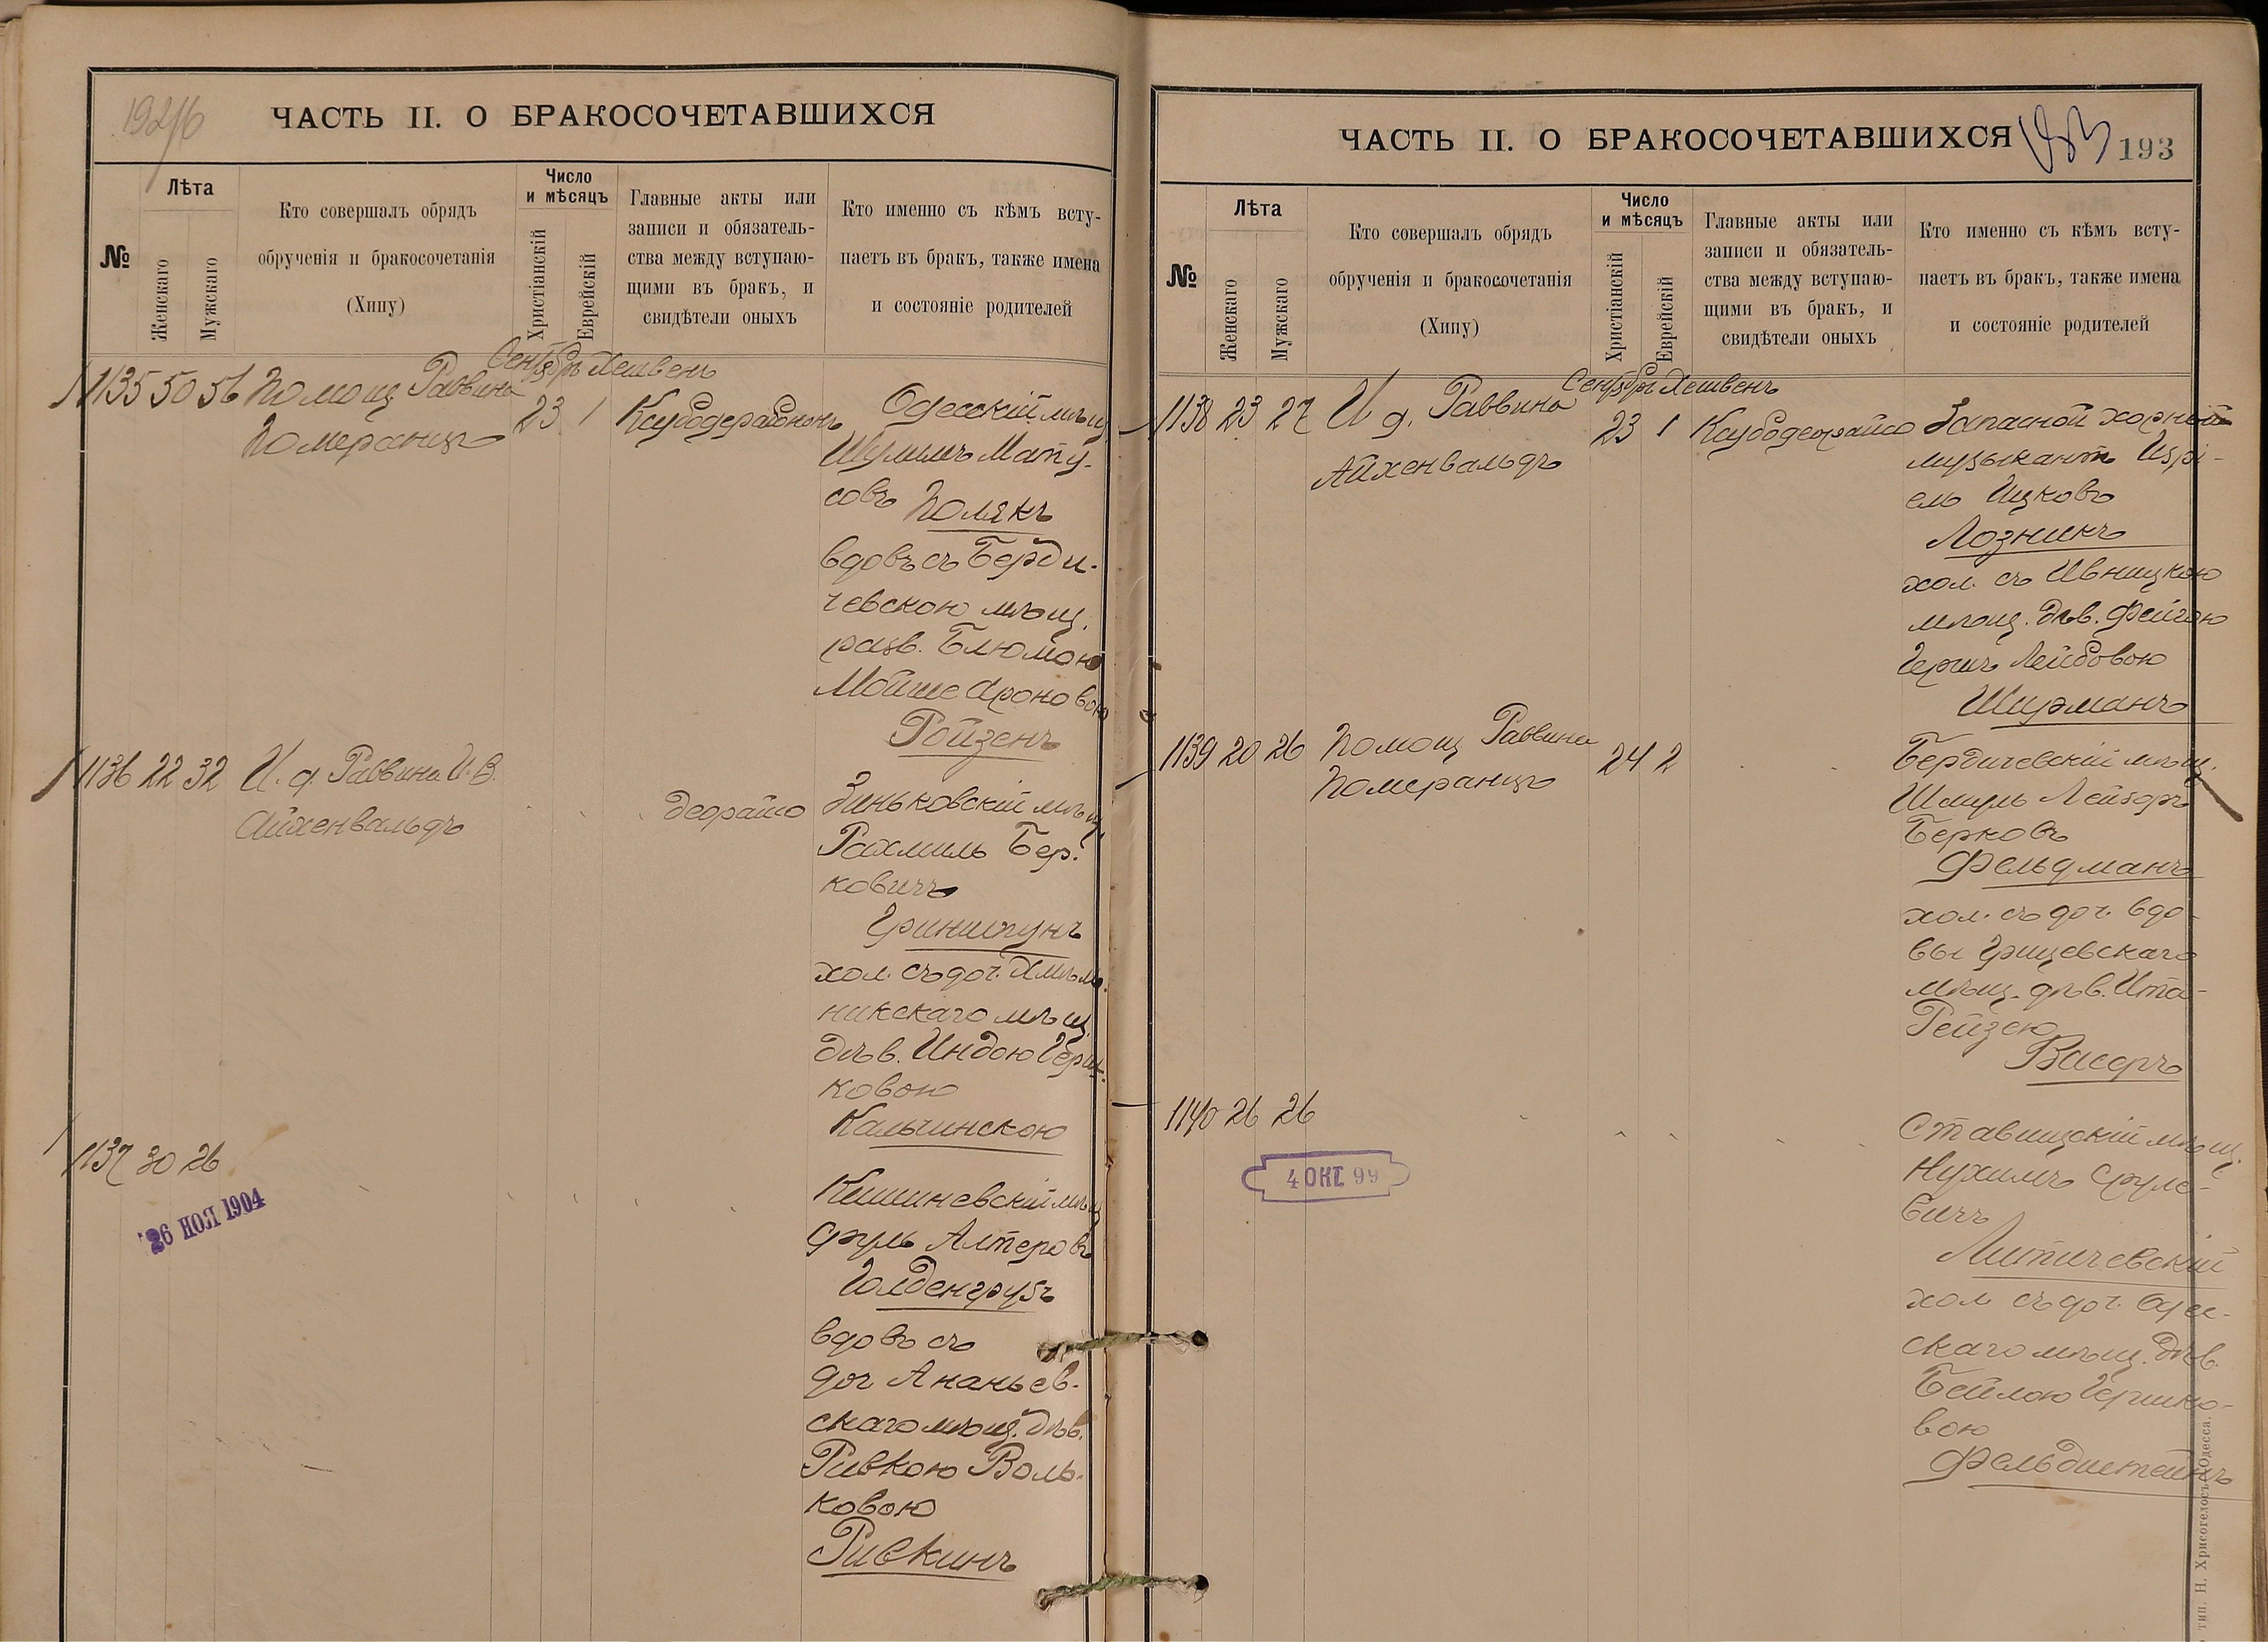 192/6
ЧАСТЬ II. О БРАКОСОЧЕТАВШИХСЯ
№
Лѣта
Женскаго
Мужскаго
Кто совершалъ обрядъ
обрученія и бракосочетанія
(Хипу)
Число
и мѣсяцъ
Христіанскій
Еврейскій
Главные акты или
записи и обязатель-
ства между вступаю-
щими въ бракъ, и
свидѣтели оныхъ
Кто именно съ кѣмъ всту-
паетъ въ бракъ, также имена
и состояніе родителей
Сентябрь Хешвенъ
1135 50 56 Помощ. Раввина
Померанцъ
23 1
Одесскій мѣщ.
Шулимъ Мату-
совъ Полякъ
вдовъ съ Берди-
чевскою мѣщ.
разв. Блюмою
Мойше Ароновою
Ройзенъ
1136 22 32 И. д. Раввина И. В.
Айхенвальдъ
деорайсо
Зиньковскій мѣщ.
Рахмиль Бер-
ковичъ
Гриншпунъ
хол. съ доч. Хмѣль-
никскаго мѣщ.
дѣв. Индою Герш-
ковою
Кальчинскою
1137 30 26
26 НОЯ 1904
Кишиневскій мѣщ
Сруль Алтеровъ
Голденгрубъ
вдовъ съ
доч Ананьев-
скаго мѣщ. дѣв.
Ривкою Воль-
ковою
Ривкинъ
ЧАСТЬ II. О БРАКОСОЧЕТАВШИХСЯ
193
№
Лѣта
Женскаго
Мужскаго
Кто совершалъ обрядъ
обрученія и бракосочетанія
(Хипу)
Число
и мѣсяцъ
Христіанскій
Еврейскій
Главные акты или
записи и обязатель-
ства между вступаю-
щими въ бракъ, и
свидѣтели оныхъ
Кто именно съ кѣмъ всту-
паетъ въ бракъ, также имена
и состояніе родителей
Сентябрь Хешвенъ
1138 23 27 И д. Раввина
Айхенвальдъ
23 1 Ксубодеорайсо
Запасной хорный
музыкантъ Изрі-
ель Ицковъ
Лозникъ
хол. съ Ивницкою
мѣщ. дѣв. Фейгою
Гершъ Лейбовою
Шурманъ
1139 20 26 Помощ Раввина
Померанцъ
24 2
Бердичевскій мѣщ.
Шмуль Лейзеръ
Берковъ
Фельдманъ
хол. съ доч. вдо-
вы Грицевскаго
мѣщ. дѣв. Ита-
Рейзею
Васеръ
1140 26 26
4 ОКТ 99
Ставищскій мѣщ.
Нухимъ Сруле-
вичъ
Литичевскій
хол съ доч. Одес-
скаго мѣщ. дѣв.
Бейлою Гершко-
вою
Фельдштейнъ
тип. Н. Хрисогелосъ, Одесса.